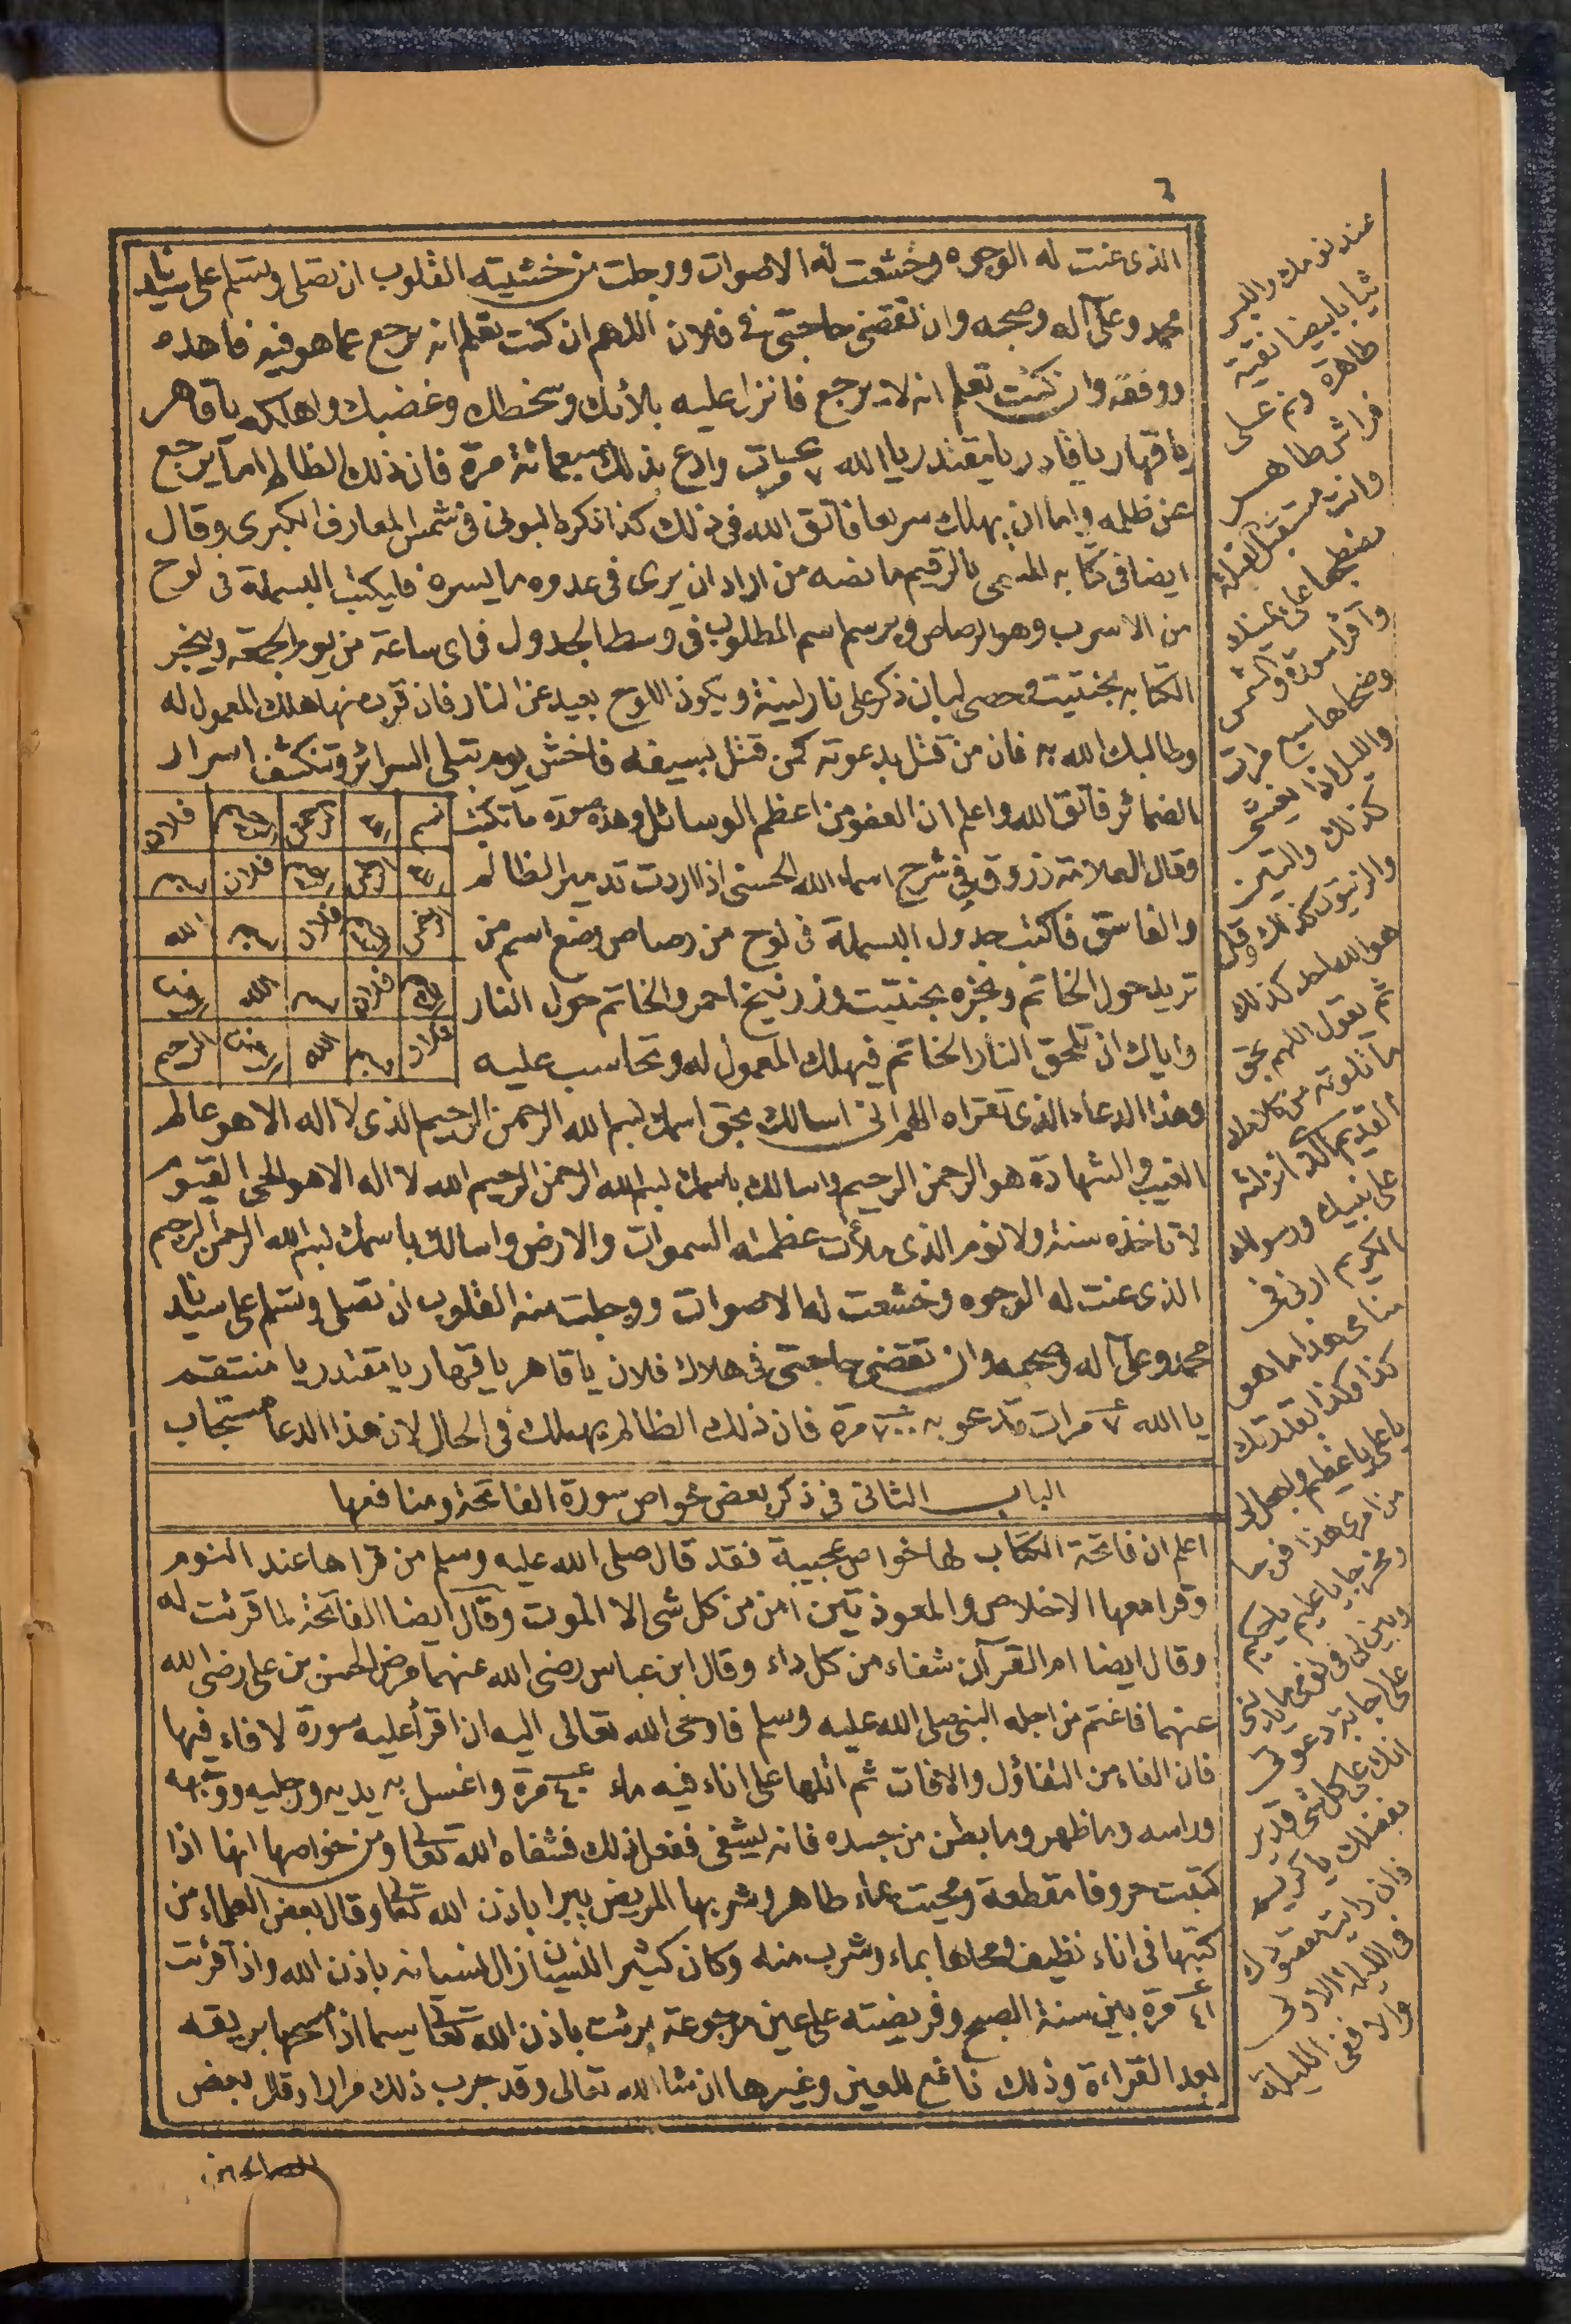 ٦
الذى عنت له الوجوه وخشعت له الاصوات ووجلت من خشيته القلوب ان تصلى وتسلم على سيدنا
محمد وعلى آله وصحبه وان تقضى حاجتى فى فلان اللهم ان كنت تعلم انه يرجع عما هو فيه فاهده
ووفقه وان كنت تعلم انه لا يرجع فانزل عليه بلائك وسخطك وغضبك واهلكه يا قاهر
يا قهار يا قادر يا مقتدر يا الله ٧ مرات وادع بذلك سبعمائة مرة فان ذلك الظالم اما يرجع
عن ظلمه واما ان يهلك سريعا فاتق الله فى ذلك كذا ذكره البونى فى شمس المعارف الكبرى وقال
ايضا فى كتابه المسمى بالرقيم ما نصه من اراد ان يرى فى عدوه ما يسره فليكتب البسملة فى لوح
من الاسرب وهو الرصاص ويرسم اسم المطلوب فى وسط الجدول فى اى ساعة من يوم الجمعة ويبخر
الكتابه بحنتيت وحصى لبان ذكر على نار لينة ويكون اللوح بعيد عن النار فان قرب منها هلك المعمول له
وطالبك الله به فان من قتل بدعوته كمن قتل بسيفه فاخش يوم تبلى السرائر وتنكشف اسرار
الضمائر فاتق الله واعلم ان العفو من اعظم الوسائل وهذه صورة ما تكتب
وقال العلامة زروق فى شرح اسماء الله الحسنى اذا اردت تدمير الظالم
والفاسق فاكتب جدول البسملة فى لوح من رصاص وضع اسم من
تريد حول الخاتم وبخره بحنتيت وزرنيخ احمر والخاتم حول النار
واياك ان تلحق النار الخاتم فيهلك المعمول له وتحاسب عليه
بسم الله الرحمن الرحيم فلان
الله الرحمن الرحيم فلان بسم
الرحمن الرحيم فلان بسم الله
الرحيم فلان بسم الله الرحمن
فلان بسم الله الرحمن الرحيم
وهذا الدعاء الذى تقراه اللهم انى اسالك بحق اسمك بسم الله الرحمن الرحيم الذى لا اله الا هو عالم
الغيب والشهادة هو الرحمن الرحيم واسالك باسمك بسم الله الرحمن الرحيم الله لا اله الا هو الحى القيوم
لا تاخذه سنة ولا نوم الذى ملأت عظمته السموات والارض واسالك باسمك بسم الله الرحمن الرحيم
الذى عنت له الوجوه وخشعت له الاصوات ووجلت منه القلوب ان تصلى وتسلم على سيدنا
محمد وعلى آله وصحبه وان تقضى حاجتى فى هلاك فلان يا قاهر يا قهار يا مقتدر يا منتقم
يا الله ٧ مرات وتدعو به ٧٠٠ مرة فان ذلك الظالم يهلك فى الحال لان هذا الدعا مستجاب
الباب الثانى فى ذكر بعض خواص سورة الفاتحة ومنافعها
اعلم ان فاتحة الكتاب لها خواص عجيبة فقد قال صلى الله عليه وسلم من قراها عند النوم
وقرا معها الاخلاص والمعوذتين امن من كل شى الا الموت وقال ايضا الفاتحة لما قرئت له
وقال ايضا ام القرآن شفاء من كل داء وقال ابن عباس رضى الله عنهما مرض الحسن بن على رضى الله
عنهما فاغتم من اجله النبى صلى الله عليه وسلم فاوحى الله تعالى اليه ان اقرأ عليه سورة لا فاء فيها
فان الفاء من التفاؤل والافات ثم اتلها على اناء فيه ماء ٤٠ مرة واغسل به يديه ورجليه ووجهه
وراسه وما ظهر وما بطن من جسده فانه يشفى ففعل ذلك فشفاه الله تعالى ومن خواصها انها اذا
كتبت حروفا مقطعة ومحيت بماء طاهر وشربها المريض يبرا باذن الله تعالى وقال بعض العلماء من
كتبها فى اناء نظيف ومحاها بماء وشرب منه وكان كثير النسيان زال نسيانه باذن الله واذا قرئت
٤١ مرة بين سنة الصبح وفريضته على عين مرجوعة برئت باذن الله تعالى سيما اذا مسحها بريقه
بعد القراءة وذلك نافع للعين وغيرها ان شاء الله تعالى وقد جرب ذلك مرارا وقال بعض
الصالحين
عند نومك والبس
ثيابا بيضا نقية
طاهرة ونم على
فراش طاهر
وانت مستقبل القبلة
مضطجعا على يمينك
واقرا سورة والشمس
وضحاها سبع مرات
والليل اذا يغشى
كذلك والتين
والزيتون كذلك وقل
هو الله احد كذلك
ثم يقول اللهم بحق
ما تلوته من كلامك
القديم الذى انزلته
على نبيك ورسولك
الكريم ارنى فى
منامى هذا ما هو
كذا وكذا بقدرتك
يا على يا عظيم واجعل لى
من امرى هذا فرجا
ومخرجا يا عليم يا حكيم
وبين لى فى نومى ما يدلنى
على اجابة دعوتى
انك على كل شى قدير
بفضلك يا كريم
فان رايت مقصودك
فى الليلة الاولى
والا ففى الليلة